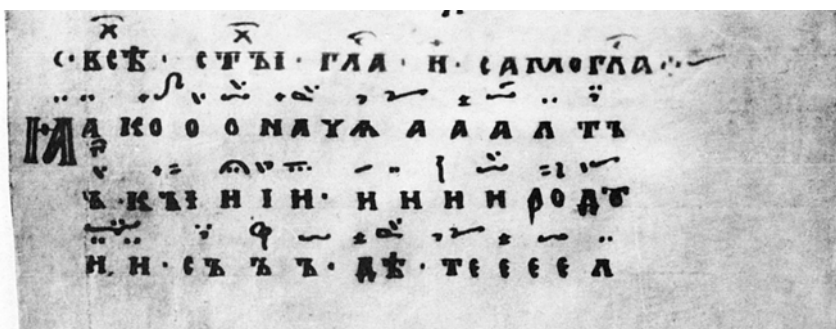 с · всѣ · стꙑі · гла · и · самогла ·
Ꙗ а к о о о н а ч ѧ а а а л т ъ
ъ · к ъі н і н · и н и н р о д ъ
и н · с ъ ъ ъ · дѣ · т е е е е л